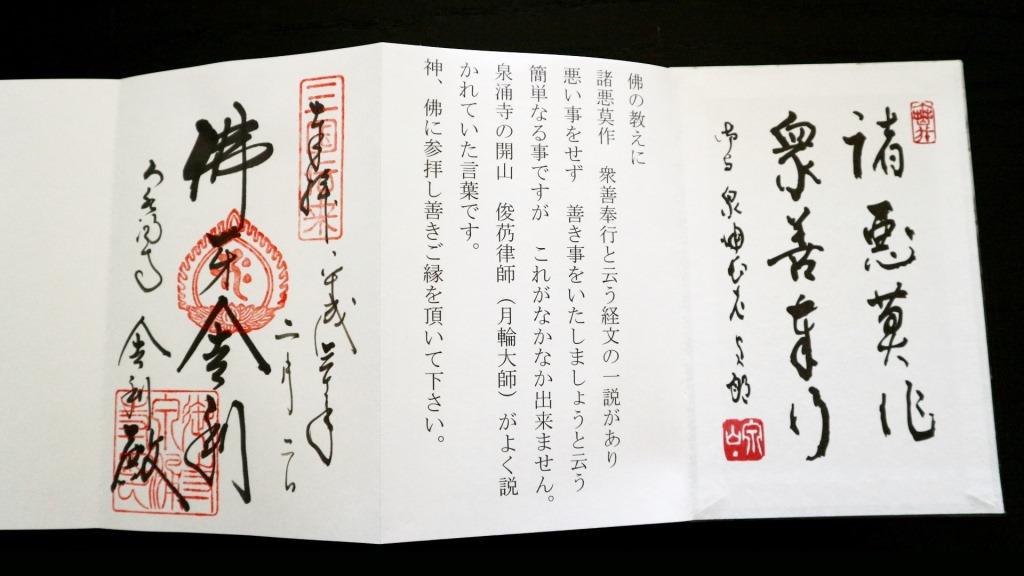 諸悪莫作
衆善奉行
御寺 泉涌寺
佛の教えに
諸悪莫作　衆善奉行と云う経文の一説があり
悪い事をせず　善き事をいたしましょうと云う
簡単なる事ですが　これがなかなか出来ません。
泉涌寺の開山　俊芿律師（月輪大師）がよく説
かれていた言葉です。
神、佛に参拝し善きご縁を頂いて下さい。
奉拝
三国
二月二日
佛牙舎利
舎利殿